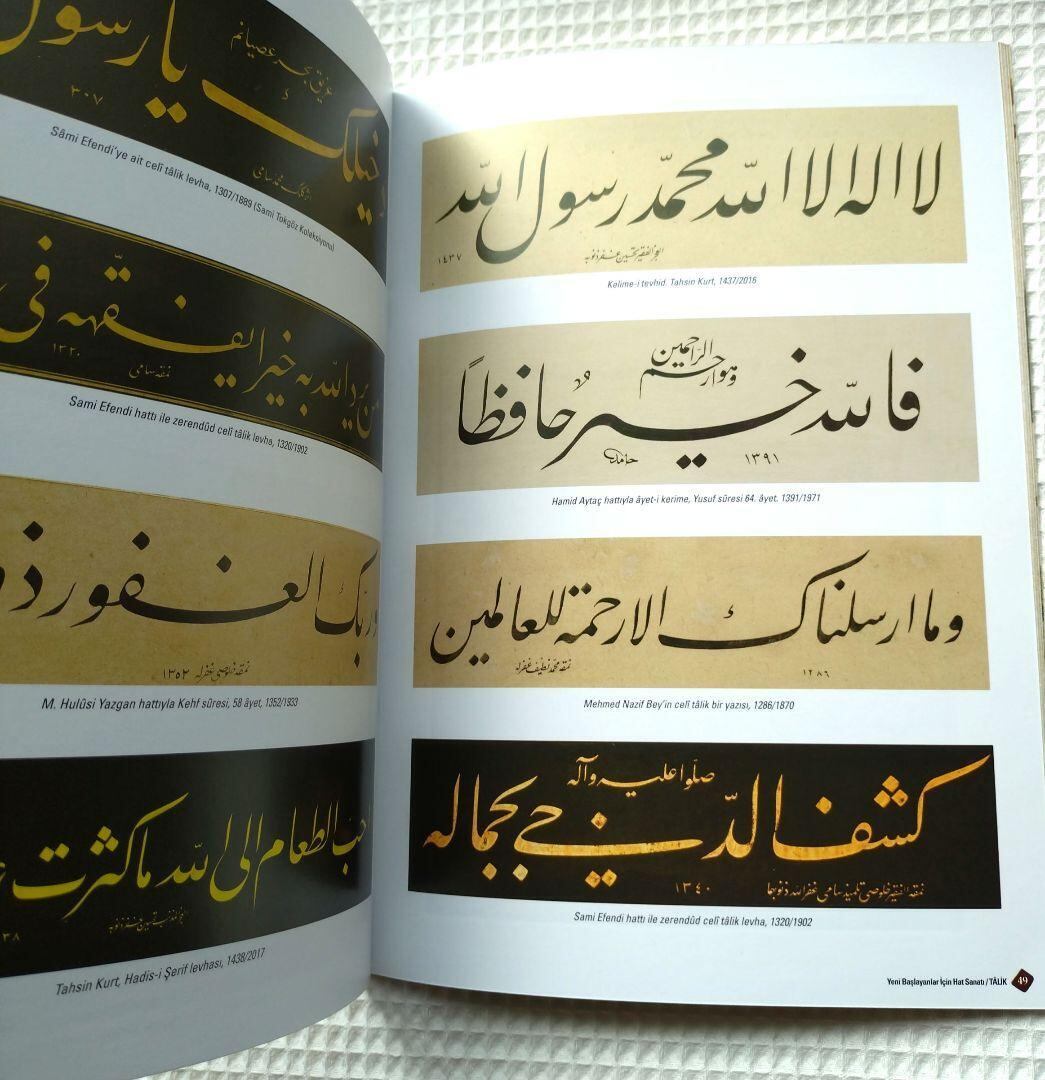 يا رسول
غريق بحر عصيانم
دخيلك
٣٠٧
Sâmi Efendi'ye ait celî tâlik levha, 1307/1889 (Sami Tokgöz Koleksiyonu)
من يرد الله به خيرا يفقهه فى
١٣٢٠
نمقه سامى
Sami Efendi hattı ile zerendûd celî tâlik levha, 1320/1902
وربك الغفور ذو
نمقه خلوصى غفرله ١٣٥٢
M. Hulûsi Yazgan hattıyla Kehf sûresi, 58 âyet, 1352/1933
حب الطعام الى الله ما كثرت
٣٨
Tahsin Kurt, Hadis-i Şerif levhası, 1438/2017
لا اله الا الله محمد رسول الله
١٤٣٧
Kelime-i tevhid. Tahsin Kurt, 1437/2016
فالله خير حافظاً
وهو ارحم الراحمين
حامد ١٣٩١
Hamid Aytaç hattıyla âyet-i kerime, Yusuf sûresi 64. âyet. 1391/1971
وما ارسلناك الا رحمة للعالمين
نمقه محمد نظيف غفرله
١٢٨٦
Mehmed Nazif Bey'in celî tâlik bir yazısı, 1286/1870
كشف الدّجى بجماله
صلّوا عليه وآله
نمقه الفقير خلوصى تلميذ سامى غفر الله ذنوبهما
١٣٤٠
Sami Efendi hattı ile zerendûd celî tâlik levha, 1320/1902
Yeni Başlayanlar İçin Hat Sanatı / TÂLİK 49